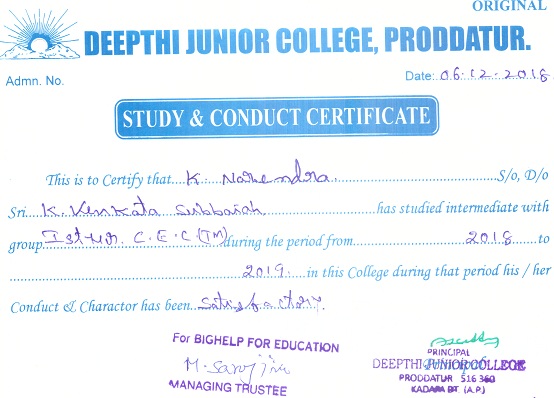 ORIGINAL
DEEPTHI JUNIOR COLLEGE, PRODDATUR.
Admn. No.
Date: 06.12.2018
STUDY & CONDUCT CERTIFICATE
This is to Certify that K. Narendra. S/o, D/o
Sri. K. Venkata Subbaiah has studied intermediate with
group Ist yr. C.E.C (TM) during the period from 2018 to
2019. in this College during that period his / her
Conduct & Charactor has been Satisfactory.
For BIGHELP FOR EDUCATION
M. Sarojini
MANAGING TRUSTEE
PRINCIPAL
DEEPTHI JUNIOR COLLEGE
PRODDATUR 516 360
KADAPA DT. (A.P.)